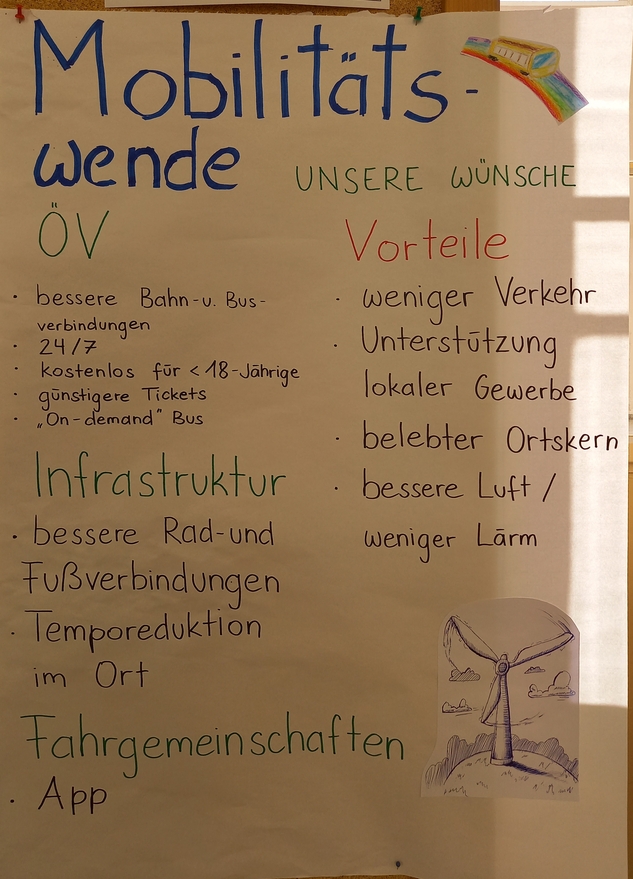 Mobilitäts-
wende
UNSERE WÜNSCHE
ÖV
· bessere Bahn-u. Bus-
verbindungen
· 24/7
· kostenlos für < 18-Jährige
· günstigere Tickets
· „On-demand" Bus
Infrastruktur
· bessere Rad-und
Fußverbindungen
· Temporeduktion
im Ort
Fahrgemeinschaften
· App
Vorteile
· weniger Verkehr
· Unterstützung
lokaler Gewerbe
· belebter Ortskern
· bessere Luft /
weniger Lärm